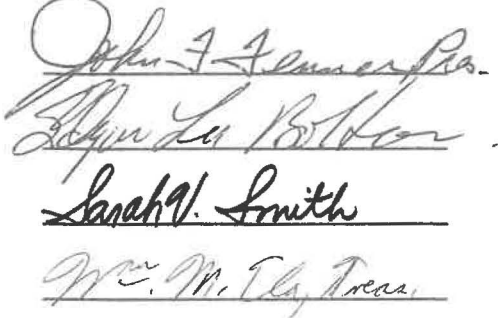 John F Fenner Pres.
Lee Bolton
Sarah V. Smith
Wm. M. Treas.